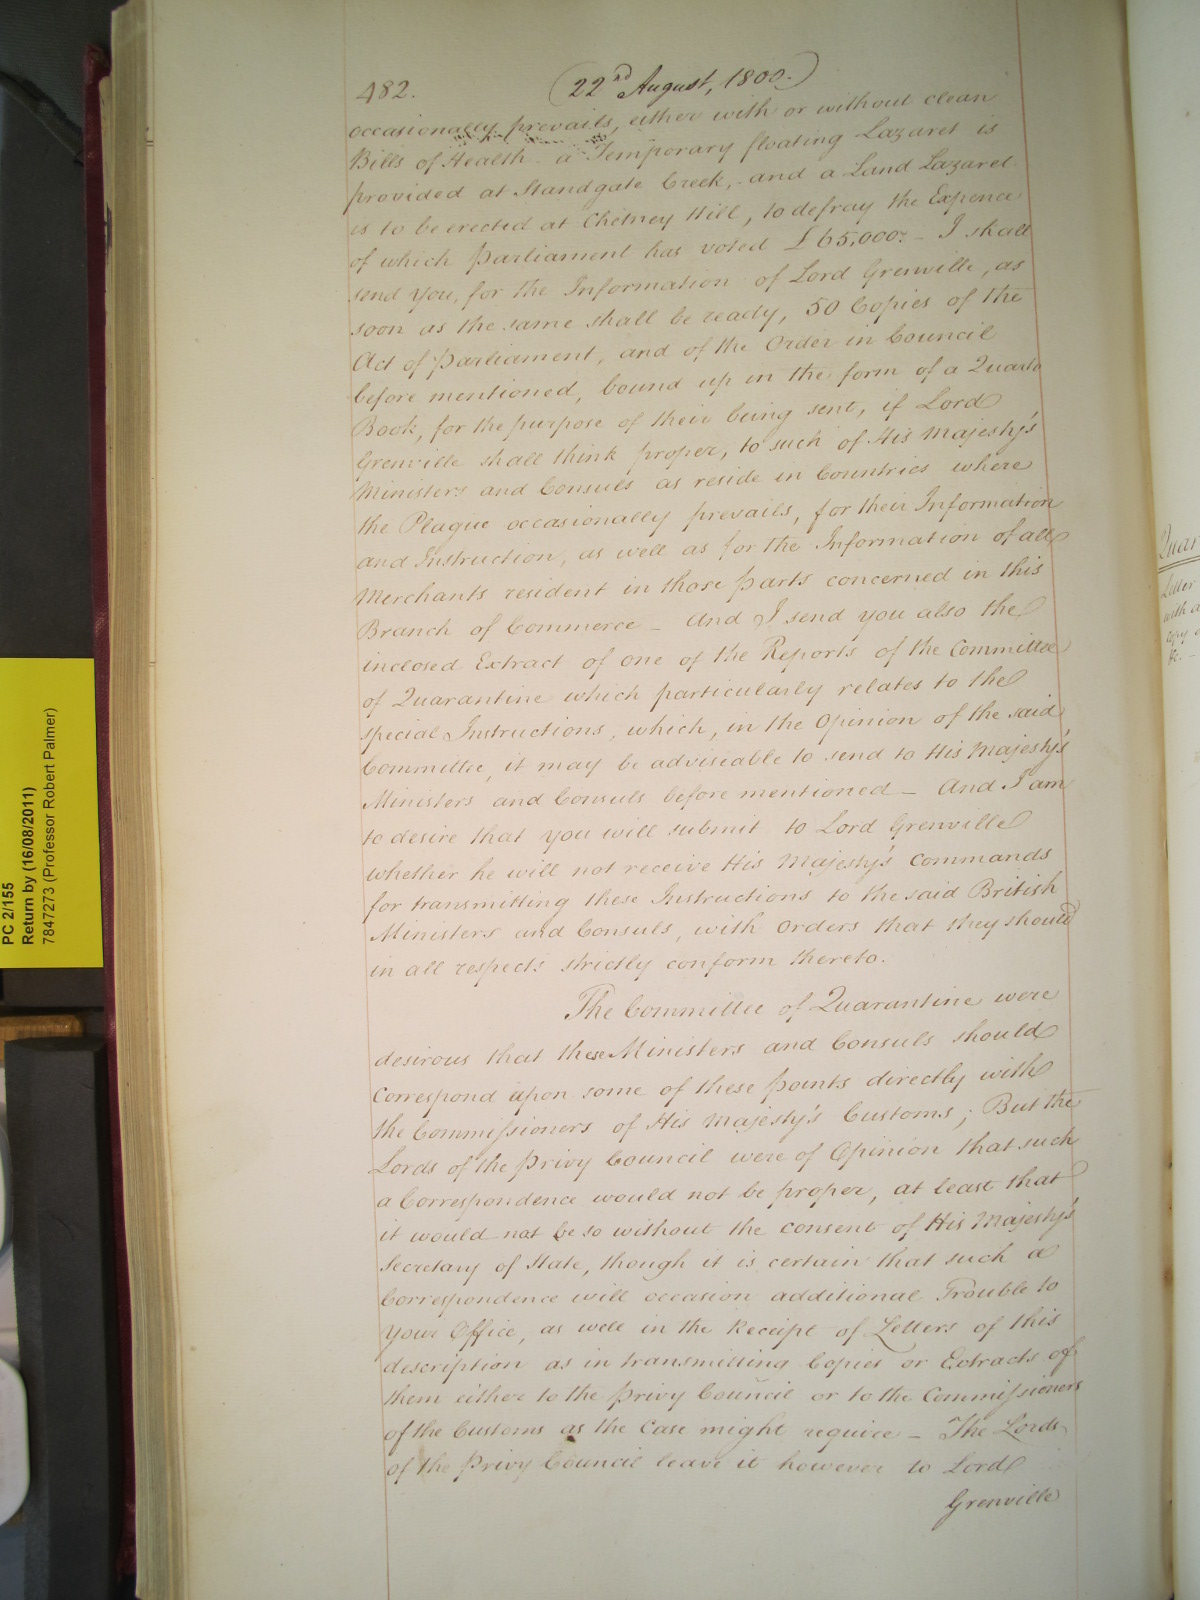 482. (22nd August, 1800.)
occasionally prevails, either with or without clean
Bills of Health - a Temporary floating Lazaret is
provided at Standgate Creek, - and a Land Lazaret
is to be erected at Chetney Hill, to defray the Expence
of which Parliament has voted £65,000: - I shall
send you, for the Information of Lord Grenville, as
soon as the same shall be ready, 50 Copies of the
Act of Parliament, and of the Order in Council
before mentioned, bound up in the form of a Quarto
Book, for the purpose of their being sent, if Lord
Grenville shall think proper, to such of His Majesty's
Ministers and Consuls as reside in Countries where
the Plague occasionally prevails, for their Information
and Instruction, as well as for the Information of all
Merchants resident in those parts concerned in this
Branch of Commerce - And I send you also the
inclosed Extract of one of the Reports of the Committee
of Quarantine which particularly relates to the
special Instructions, which, in the Opinion of the said
Committee, it may be adviseable to send to His Majesty's
Ministers and Consuls before mentioned - And I am
to desire that you will submit to Lord Grenville
whether he will not receive His Majesty's Commands
for transmitting these Instructions to the said British
Ministers and Consuls, with Orders that they should
in all respects strictly conform thereto.
The Committee of Quarantine were
desirous that these Ministers and Consuls should
correspond upon some of these points directly with
the Commissioners of His Majesty's Customs; But the
Lords of the Privy Council were of Opinion that such
a Correspondence would not be proper, at least that
it would not be so without the consent of His Majesty's
Secretary of State, though it is certain that such a
Correspondence will occasion additional Trouble to
your Office, as well in the Receipt of Letters of this
description as in transmitting Copies or Extracts of
them either to the Privy Council or to the Commissioners
of the Customs as the Case might require - The Lords
of the Privy Council leave it however to Lord
Grenville
PC 2/155
Return by (16/08/2011)
7847273 (Professor Robert Palmer)
Quar
Letter
with a
copy o
&c. -